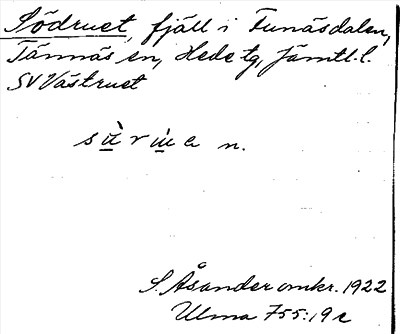 Södruet, fjäll i Funäsdalen,
Tännäs sn, Hede tg, Jämtl. l.
SV Västruet
n.
S. Åsander omkr. 1922
Ulma 755:19 c